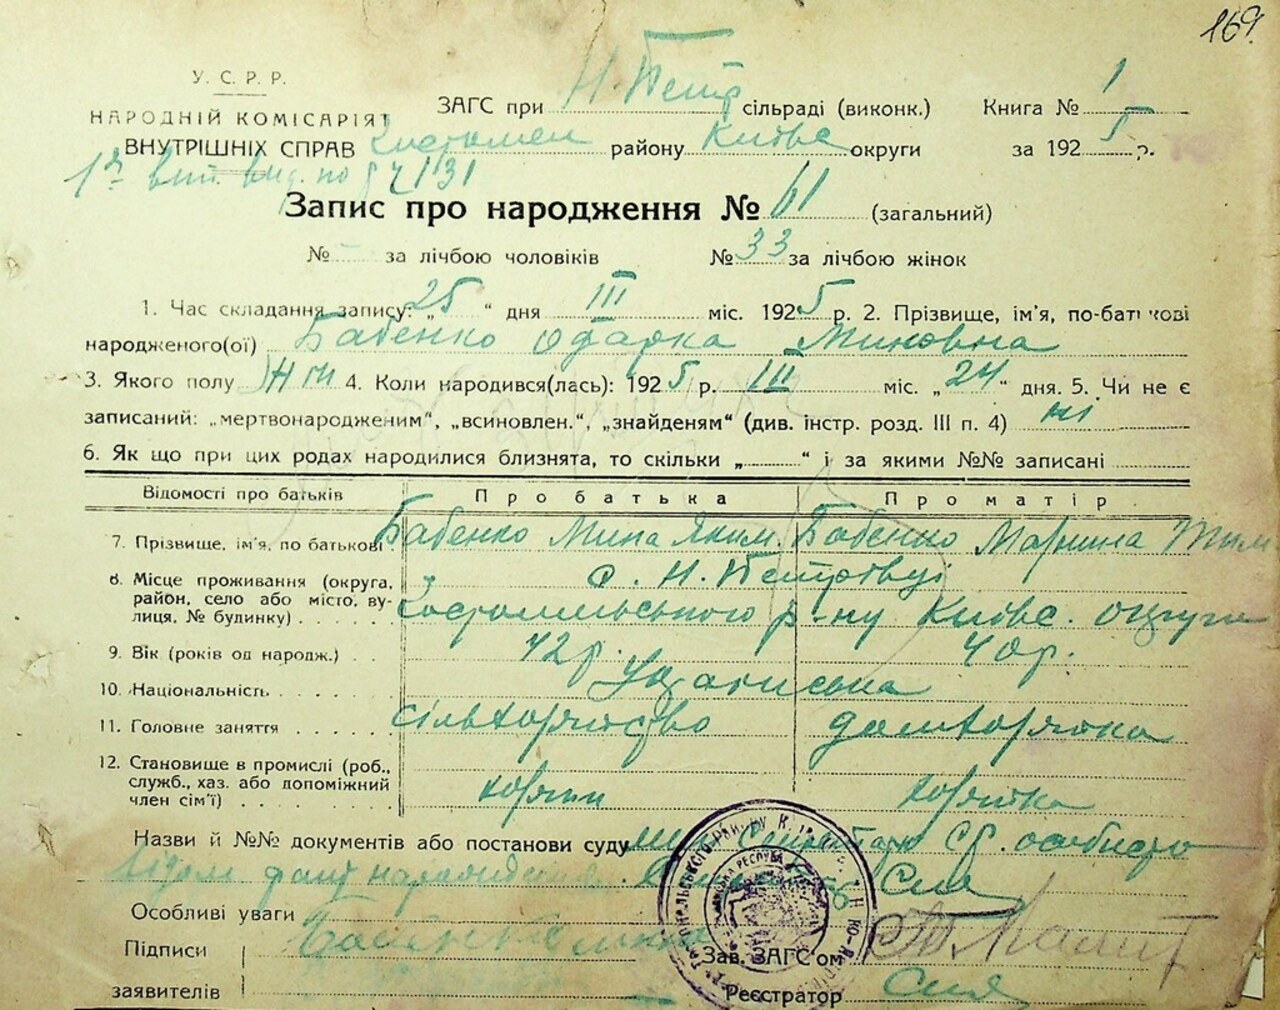 169.
У. С. Р. Р.
НАРОДНІЙ КОМІСАРІЯТ
ВНУТРІШНІХ СПРАВ
ЗАГС при Н. Петр сільраді (виконк.)
Книга № 1
районy Київс округи
за 1925 р.
Запис про народження № 61 (загальний)
№ за лічбою чоловіків № 33 за лічбою жінок
1. Час складання запису: „25“ дня III міс. 1925 р. 2. Прізвище, ім'я, по-батькові
народженого(ої) Бабенко Одарка Миновна
3. Якого полу 4. Коли народився(лась): 1925 р. III міс. „24“ дня. 5. Чи не є
записаний: „мертвонародженим“, „всиновлен.“, „знайденям“ (див. інстр. розд. III п. 4) ні
6. Як що при цих родах народилися близнята, то скільки „ “ і за якими №№ записані
Відомості про батьків Про батька Про матір
7. Прізвище, ім'я, по батькові Бабенко Мина Яким. Бабенко Марина Тим
8. Місце проживання (округа, с. Н. Петрівці
район, село або місто, ву- р-ну Київс. округи
лиця, № будинку)
9. Вік (років од народж.) 42 р. 40 р.
10. Національність Українська
11. Головне заняття сільхозяйство домхозяйка
12. Становище в промислі (роб.,
служб., хаз. або допоміжний
член сім'ї) хозяїн хозяйка
Назви й №№ документів або постанови суду особисто
факт народження
Особливі уваги
Підписи
заявителів
Зав. ЗАГС'ом
Реєстратор